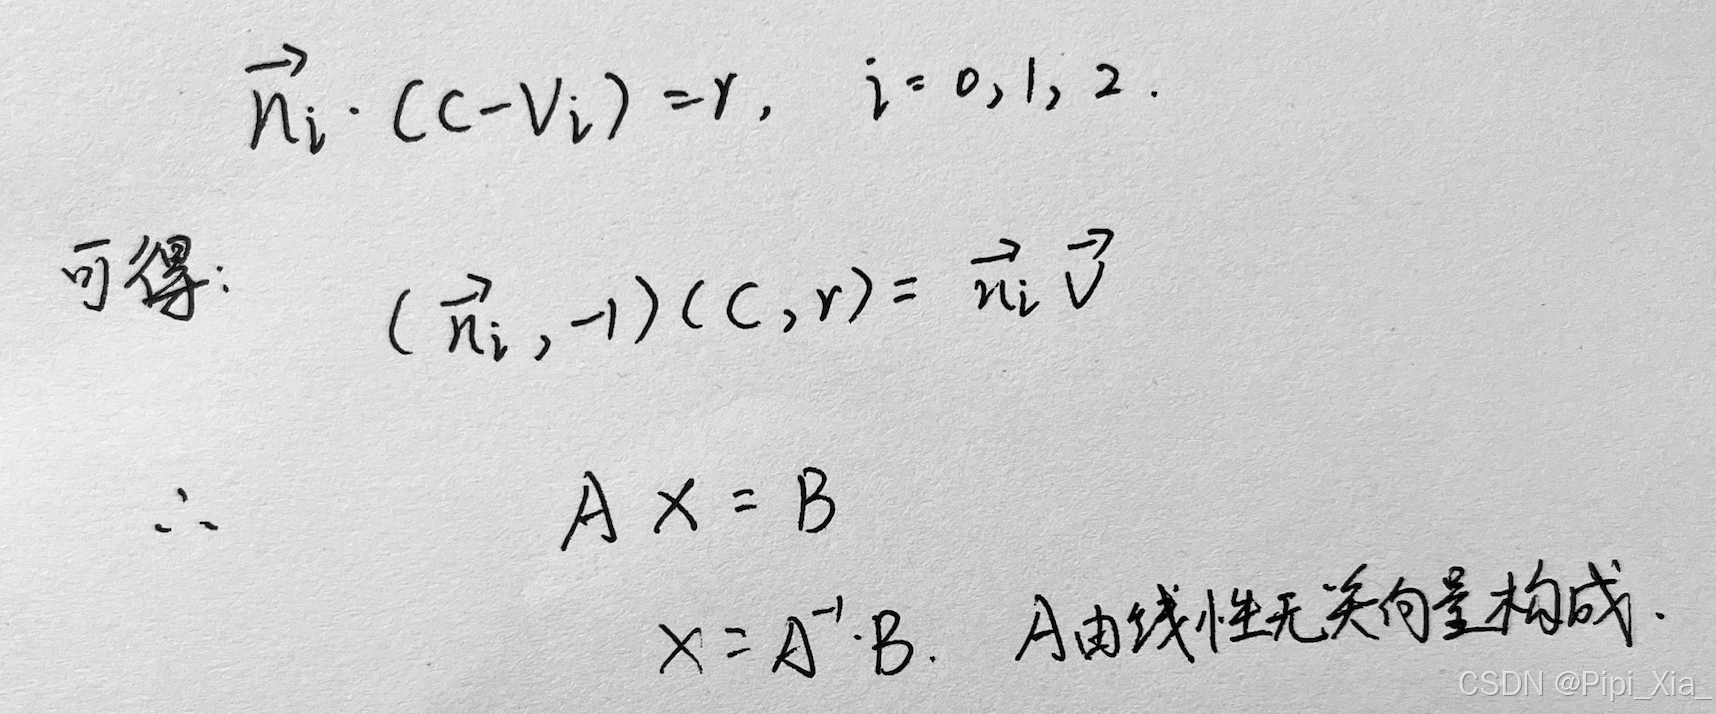 $\vec{n_i} \cdot (C - V_i) = r, \quad i = 0, 1, 2.$
可得: $(\vec{n_i}, -1)(C, r) = \vec{n_i} \vec{V}$
∴ $A X = B$
$X = A^{-1} \cdot B.$ A由线性无关向量构成.
CSDN @Pipi_Xia_